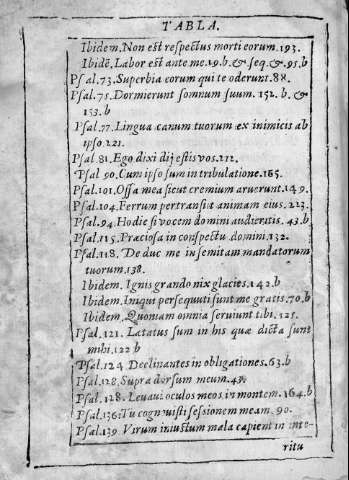 TABLA.
Ibidem. Non est respectus morti eorum. 193.
Ibidē. Labor est ante me. 19. b. & seq. & . 95. b
Psal. 73. Superbia eorum qui te oderunt. 88.
Psal. 75. Dormierunt somnum suum. 152. b. &
153. b
Psal. 77. Lingua canum tuorum ex inimicis ab
ipso. 221.
Psal 81. Ego dixi dij estis vos. 212.
Psal 90. Cum ipso sum in tribulatione. 165.
Psal. 101. Ossa mea sicut cremium aruerunt. 149.
Psal. 104. Ferrum pertransit animam eius. 223.
Psal. 94. Hodie si vocem domini audieritis. 43. b
Psal. 115. Præciosa in conspectu domini. 132.
Psal. 118. De duc me in semitam mandatorum
tuorum. 138.
Ibidem. Ignis grando nix glacies. 142. b
Ibidem. Iniqui persequuti sunt me gratis. 70. b
Ibidem. Quoniam omnia seruiunt tibi. 125.
Psal. 121. Lætatus sum in his quæ dicta sunt
mihi. 122 b
Psal. 124 Declinantes in obligationes. 63. b
Psal. 128. Supra dorsum meum.
Psal. 128. Leuaui oculos meos in montem. 164. b
Psal. 136. Tu cognouisti sessionem meam. 90.
Psal. 139 Virum iniustum mala capient in inte-
ritu